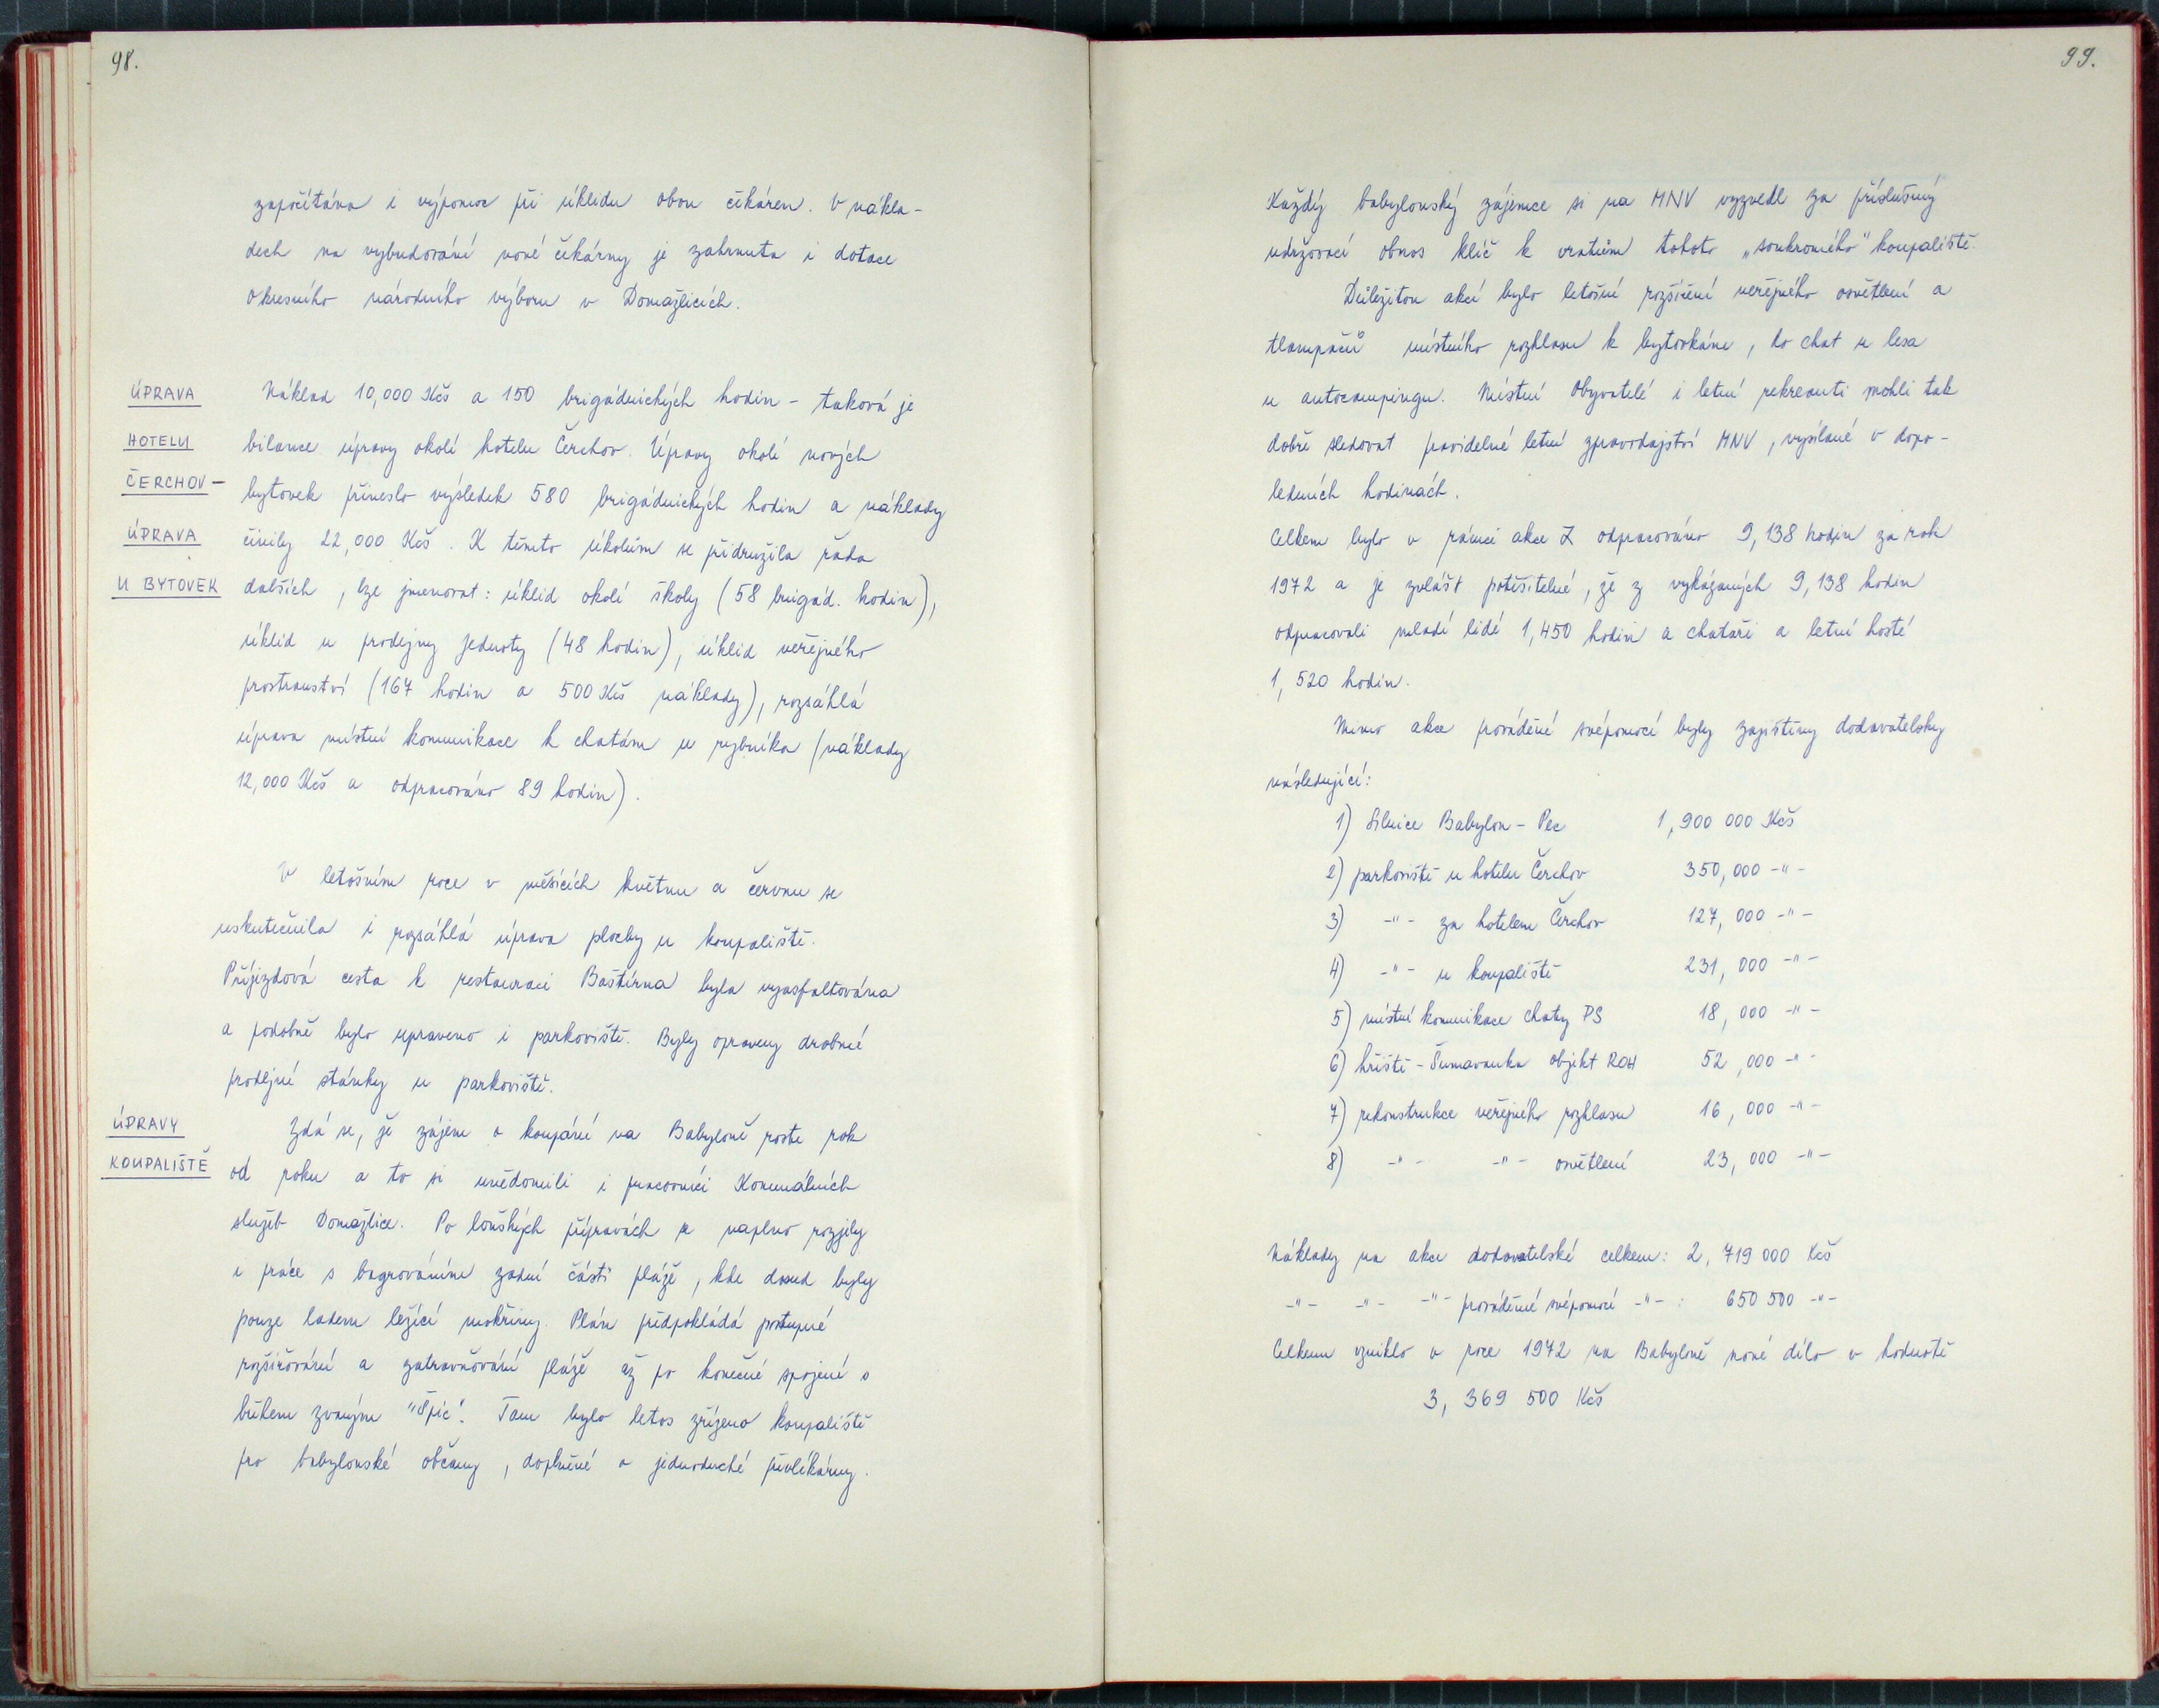 98.
započítána i výpomoc při úklidu obou čekáren. V nákla-
dech na vybudování nové čekárny je zahrnuta i dotace
Okresního národního výboru v Domažlicích.
ÚPRAVA
HOTELU
ČERCHOV -
ÚPRAVA
U BYTOVEK
Náklad 10,000 Kčs a 150 brigádnických hodin - taková je
bilance úpravy okolí hotelu Čerchov. Úpravy okolí nových
bytovek přineslo výsledek 580 brigádnických hodin a náklady
činily 22,000 Kčs. K těmto úkolům se přidružila řada
dalších, lze jmenovat: úklid okolí školy (58 brigád. hodin),
úklid u prodejny Jednoty (48 hodin), úklid veřejného
prostranství (167 hodin a 500 Kčs náklady), rozsáhlá
úprava místní komunikace k chatám u rybníka (náklady
12,000 Kčs a odpracováno 89 hodin).
V letošním roce v měsících květnu a červnu se
uskutečnila i rozsáhlá úprava plochy u koupaliště.
Příjezdová cesta k restauraci Baštírna byla vyasfaltována
a podobně bylo upraveno i parkoviště. Byly opraveny drobné
prodejní stánky u parkoviště.
ÚPRAVY
KOUPALIŠTĚ
Zdá se, že zájem o koupání na Babyloně roste rok
od roku a to si uvědomili i pracovníci Komunálních
služeb Domažlice. Po loňských přípravách se naplno rozjely
i práce s bagrováním zadní části pláže, kde dosud byly
pouze ladem ležící mokřiny. Plán předpokládá postupné
rozšiřování a zatravňování pláže až po konečné spojení s
břehem zvaným "Špic". Tam bylo letos zřízeno koupaliště
pro babylonské občany, doplněné o jednoduché převlékárny.
99.
Každý babylonský zájemce si na MNV vyzvedl za příslušný
udržovací obnos klíč k vratům tohoto „soukromého" koupaliště.
Důležitou akcí bylo letošní rozšíření veřejného osvětlení a
tlampačů místního rozhlasu k bytovkám, ke chat u lesa
u autocampingu. Místní obyvatelé i letní rekreanti mohli tak
dobře sledovat pravidelné letní zpravodajství MNV, vysílané v dopo-
ledních hodinách.
Celkem bylo v rámci akce Z odpracováno 9,138 hodin za rok
1972 a je zvlášť potěšitelné, že z vykázaných 9,138 hodin
odpracovali mladí lidé 1,450 hodin a chataři a letní hosté
1,520 hodin.
Mimo akce prováděné svépomocí byly zajištěny dodavatelsky
následující:
1) Silnice Babylon - Pec 1,900 000 Kčs
2) parkoviště u hotelu Čerchov 350,000 -"-
3) -"- za hotelem Čerchov 127,000 -"-
4) -"- u koupaliště 231,000 -"-
5) místní komunikace chaty PS 18,000 -"-
6) hřiště - Šumavanka objekt ROH 52,000 -"-
7) rekonstrukce veřejného rozhlasu 16,000 -"-
8) -"- -"- osvětlení 23,000 -"-
Náklady na akce dodavatelské celkem: 2,719 000 Kčs
-"- -"- -"- prováděné svépomocí -"- : 650 500 -"-
Celkem vzniklo v roce 1972 na Babyloně nové dílo v hodnotě
3,369 500 Kčs